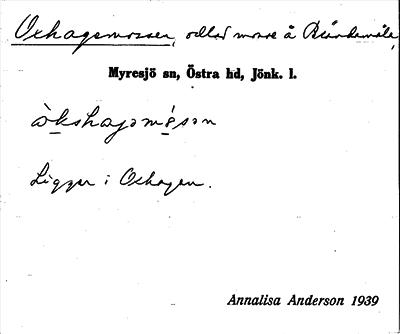 Oxhagsmossen, odlad mosse å Brändemåla,
Myresjö sn, Östra hd, Jönk. l.
òkshagsmósən
Ligger i Oxhagen.
Annalisa Anderson 1939